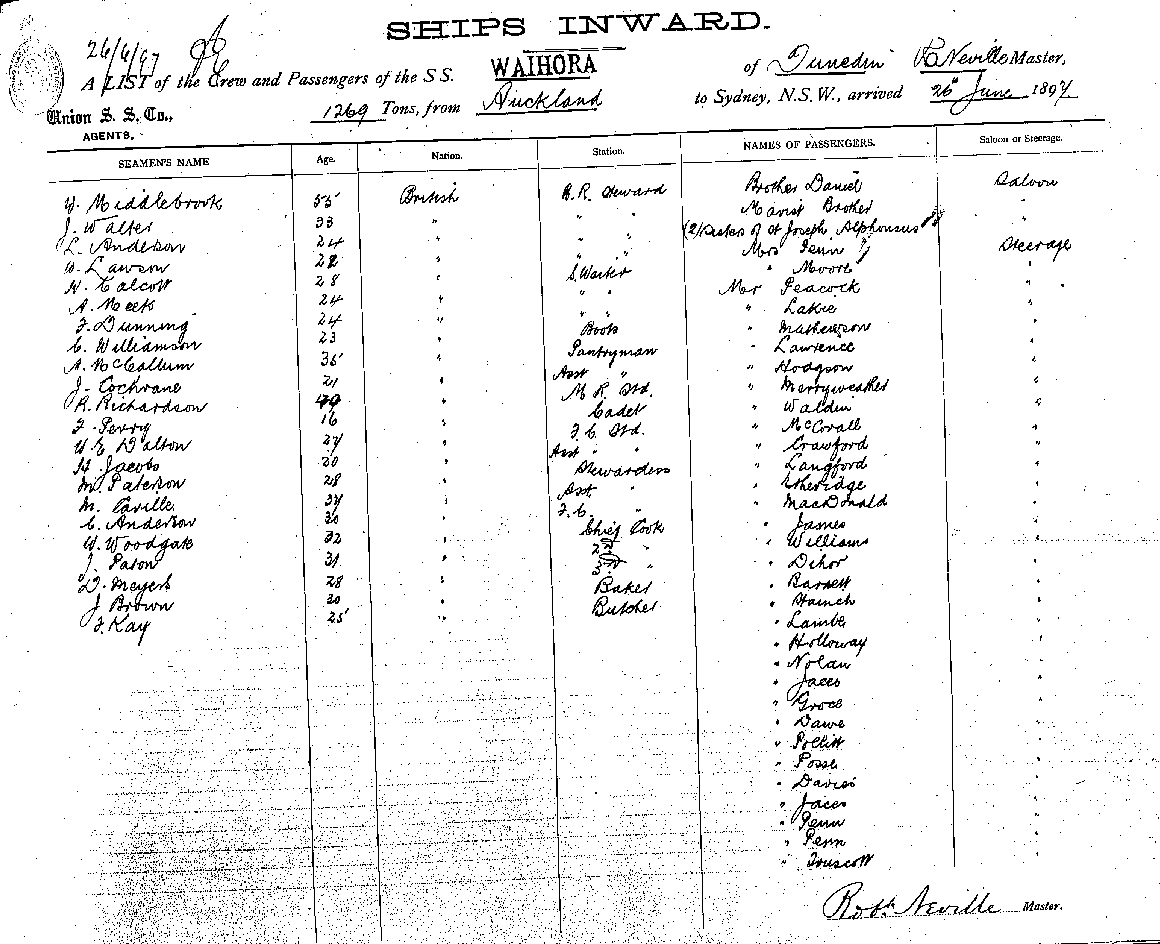 SHIPS INWARD.
26/6/97
A LIST of the Crew and Passengers of the S S. WAIHORA of Dunedin Neville Master,
Union S. S. Co., AGENTS. 1269 Tons, from Auckland to Sydney, N.S.W., arrived 26 June 1897
SEAMEN'S NAME Age. Nation. Station. NAMES OF PASSENGERS. Saloon or Steerage.
Middlebrook 55 British Steward Brother Daniel Saloon
J. Walter 33 " " " Marist Brother "
L. Anderson 24 " " " (2) Sisters of St Joseph Alphonsus "
Lawson 22 " " Mrs Penn Steerage
Calcott 28 " S. Waiter " Moore "
A. Meek 24 " " " Mr Peacock "
F. Dunning 24 " " " " Lakie "
C. Williamson 23 " Boots " Mathewson "
A. McCallum 35 " Pantryman " Lawrence "
J. Cochrane 21 " Asst " " Hodgson "
R. Richardson " M. R. Std. " Merryweather "
F. Perry 16 " Cadet " Waldin "
W. E. Dalton 27 " F. C. Std. " McCorall "
H. Jacobs 20 " Asst " " " Crawford "
M. Paterson 28 " Stewardess " Langford "
M. Caville 34 " Asst. " " Etheridge "
C. Anderson 30 " F. C. " MacDonald "
W. Woodgate 32 " Chief Cook " James "
J. Paton 31 " 2nd " " Williams "
D. Meyers 28 " 3rd " " Dehor "
J. Brown 20 " Baker " Barnett "
F. Kay 25 " Butcher " Hamch "
" Lambe "
" Holloway "
" Nolan "
" Jaces "
" Groce "
" Dawe "
" Pollitt "
" Posse "
" Davies "
" Jaces "
" Penn "
" Penn "
" Truscott "
Robt. Neville Master.